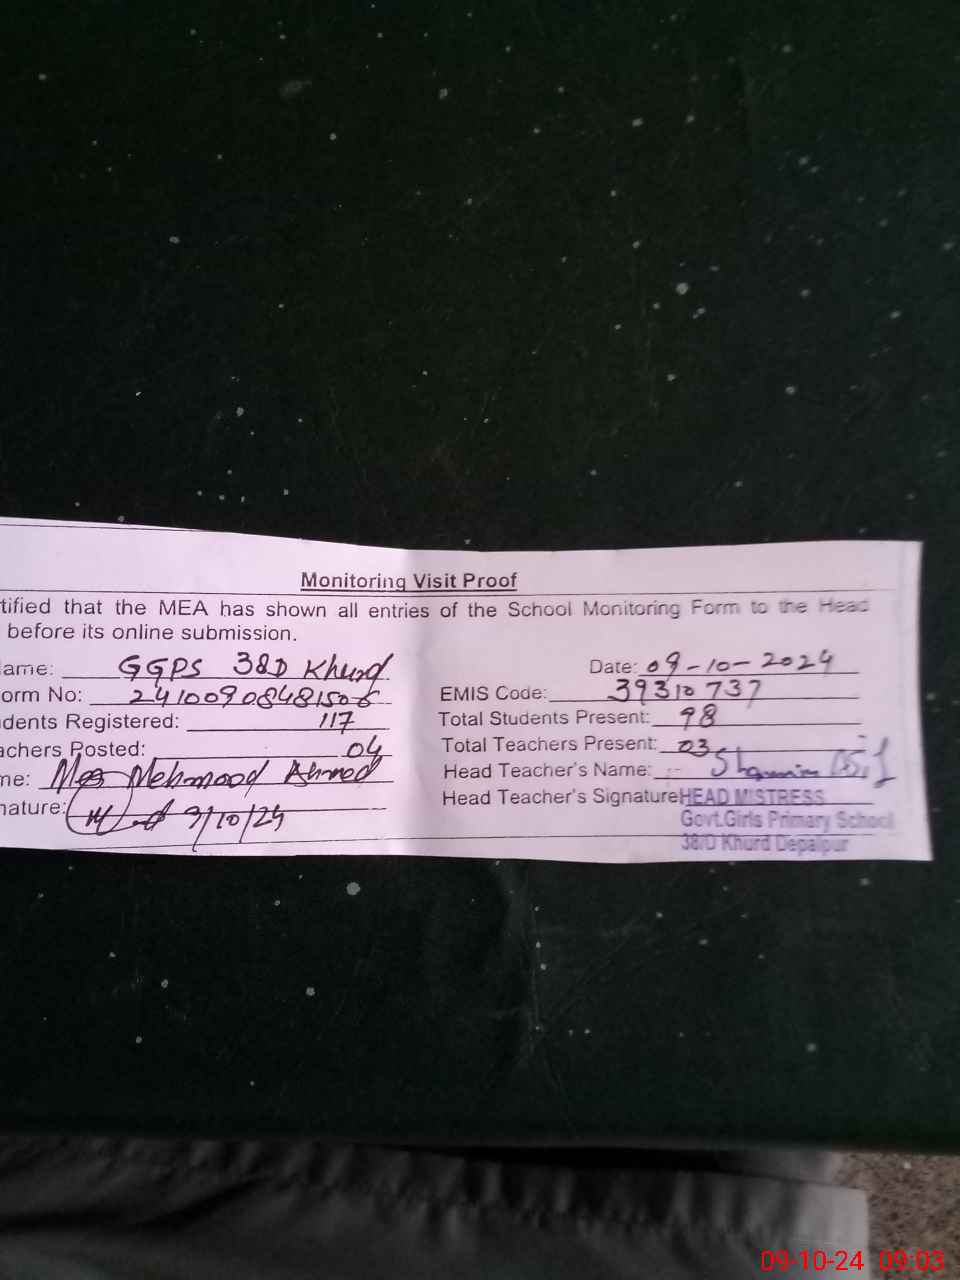 Monitoring Visit Proof
tified that the MEA has shown all entries of the School Monitoring Form to the Head
before its online submission.
ame: GGPS 38D Khurd Date: 09-10-2024
orm No: EMIS Code: 39310737
dents Registered: 117 Total Students Present: 98
achers Posted: 04 Total Teachers Present: 03
me: Mehmood Ahmed Head Teacher's Name:
nature: 9/10/24 Head Teacher's Signature HEAD MISTRESS
Govt.Girls Primary School
38/D Khurd Depalpur
09-10-24 09:03